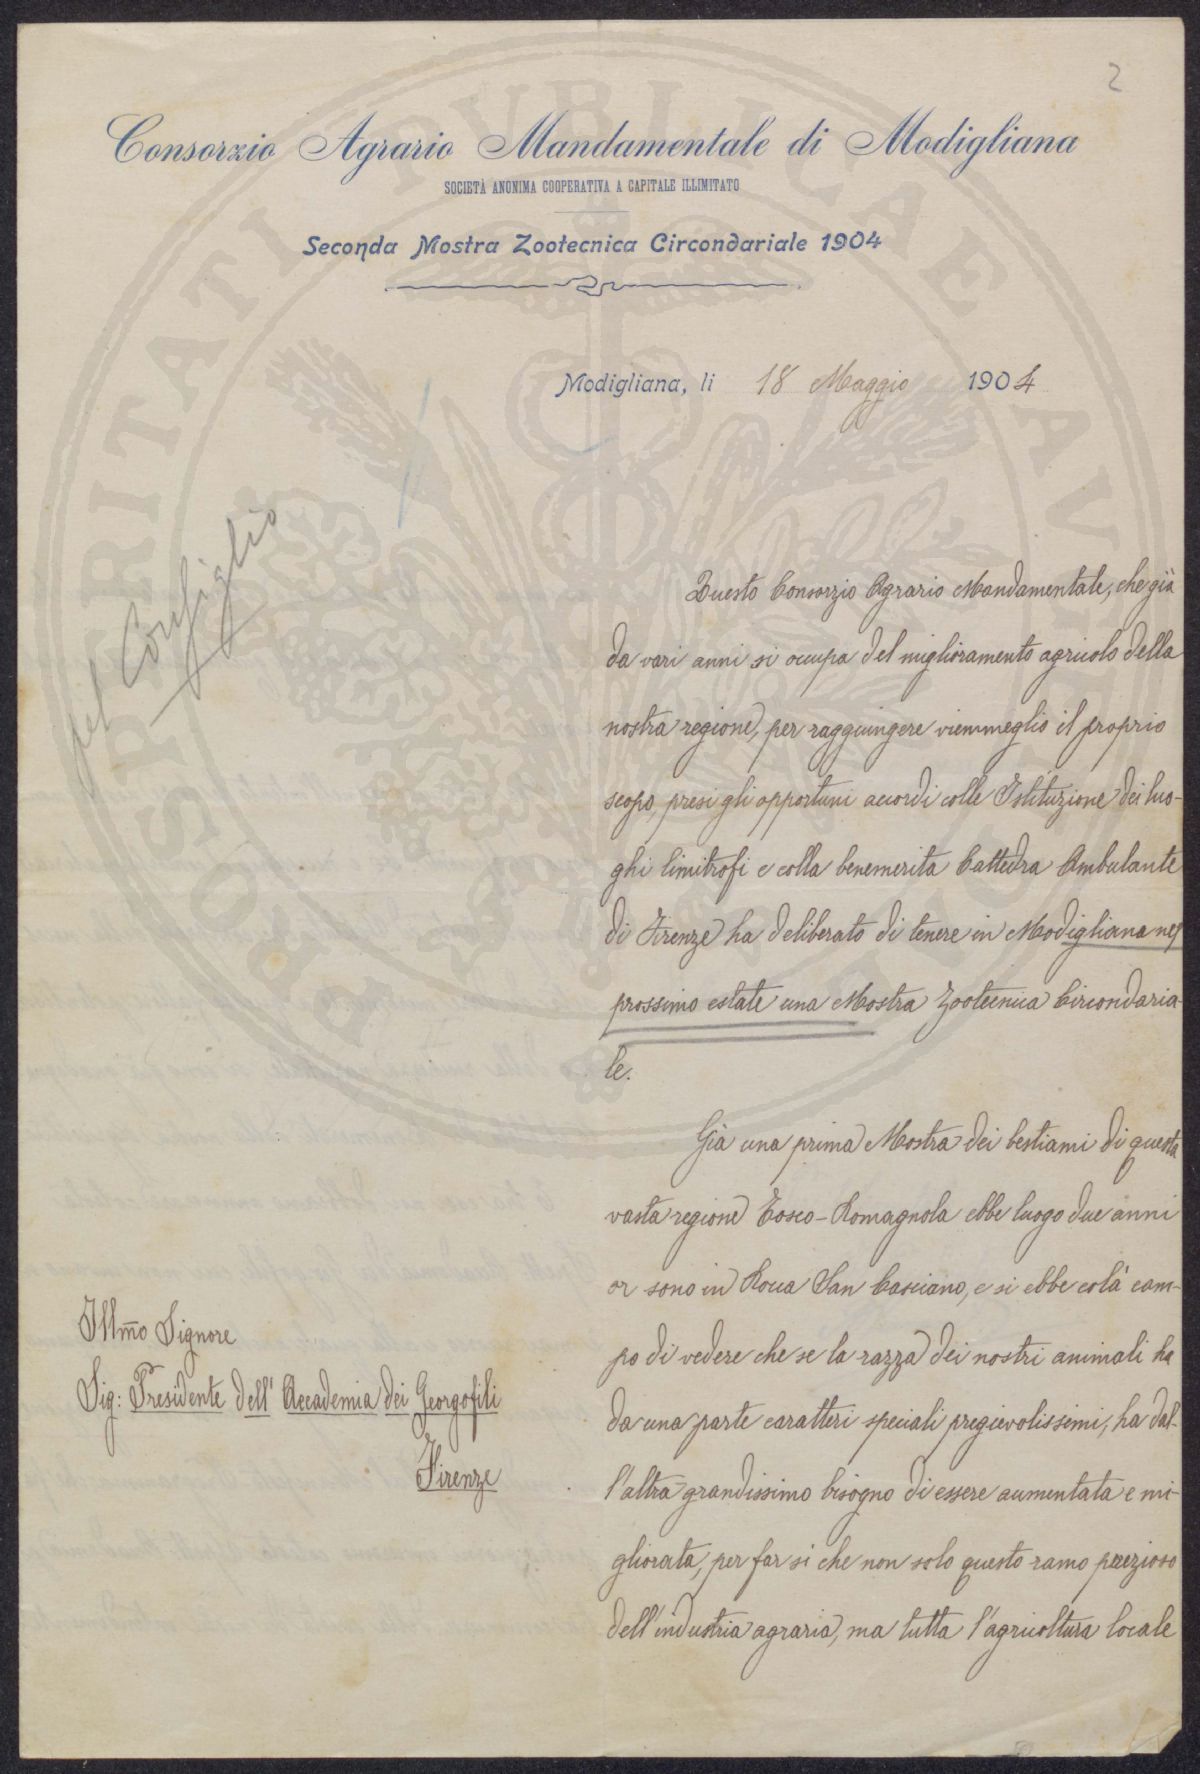 2
Consorzio Agrario Mandamentale di Modigliana
SOCIETÀ ANONIMA COOPERATIVA A CAPITALE ILLIMITATO
Seconda Mostra Zootecnica Circondariale 1904
Modigliana, li 18 Maggio 1904
pel Consiglio
Questo Consorzio Agrario Mandamentale, che già
da vari anni si occupa del miglioramento agricolo della
nostra regione, per raggiungere viemmeglio il proprio
scopo, presi gli opportuni accordi colle Istituzione dei luo-
ghi limitrofi e colla benemerita Cattedra Ambulante
di Firenze ha deliberato di tenere in Modigliana nel
prossimo estate una Mostra Zootecnica Circondaria-
le.
Già una prima Mostra dei bestiami di questa
vasta regione Tosco-Romagnola ebbe luogo due anni
or sono in Rocca San Casciano, e si ebbe colà cam-
po di vedere che se la razza dei nostri animali ha
da una parte caratteri speciali pregievolissimi, ha dal-
l'altra grandissimo bisogno di essere aumentata e mi-
gliorata, per far si che non solo questo ramo prezioso
dell'industria agraria, ma tutta l'agricoltura locale
Illmo Signore
Sig: Presidente dell' Accademia dei Georgofili
Firenze
PROSPERITATI PVBLICAE AVGENDAE